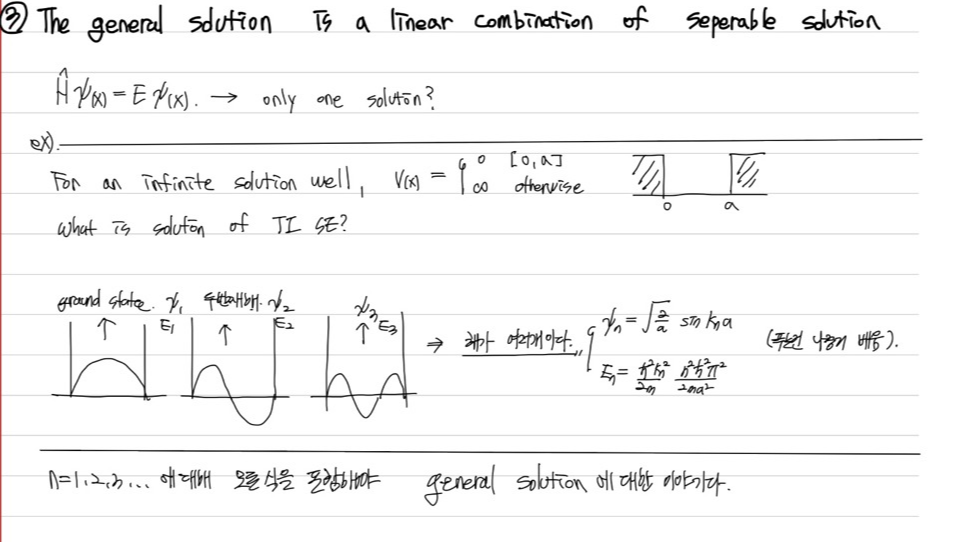 ③ The general solution is a linear combination of seperable solution
Ĥψ(x) = Eψ(x). → only one soluton?
ex).
For an infinite solution well, V(x) = { 0 [0,a]
∞ otherwise
0 a
What is soluton of TI SE?
ground state. ψ₁ 두번째해. ψ₂ ψ₃
↑ E₁ ↑ E₂ ↑ E₃
⇒ 해가 여러개이다. { ψₙ = √(2/a) sin kₙa
Eₙ = ħ²kₙ²/2m n²ħ²π²/2ma²
나중에 배움).
n=1,2,3,... 에 대해 모든 식을 포함해야 general solution에 대한 이야기다.